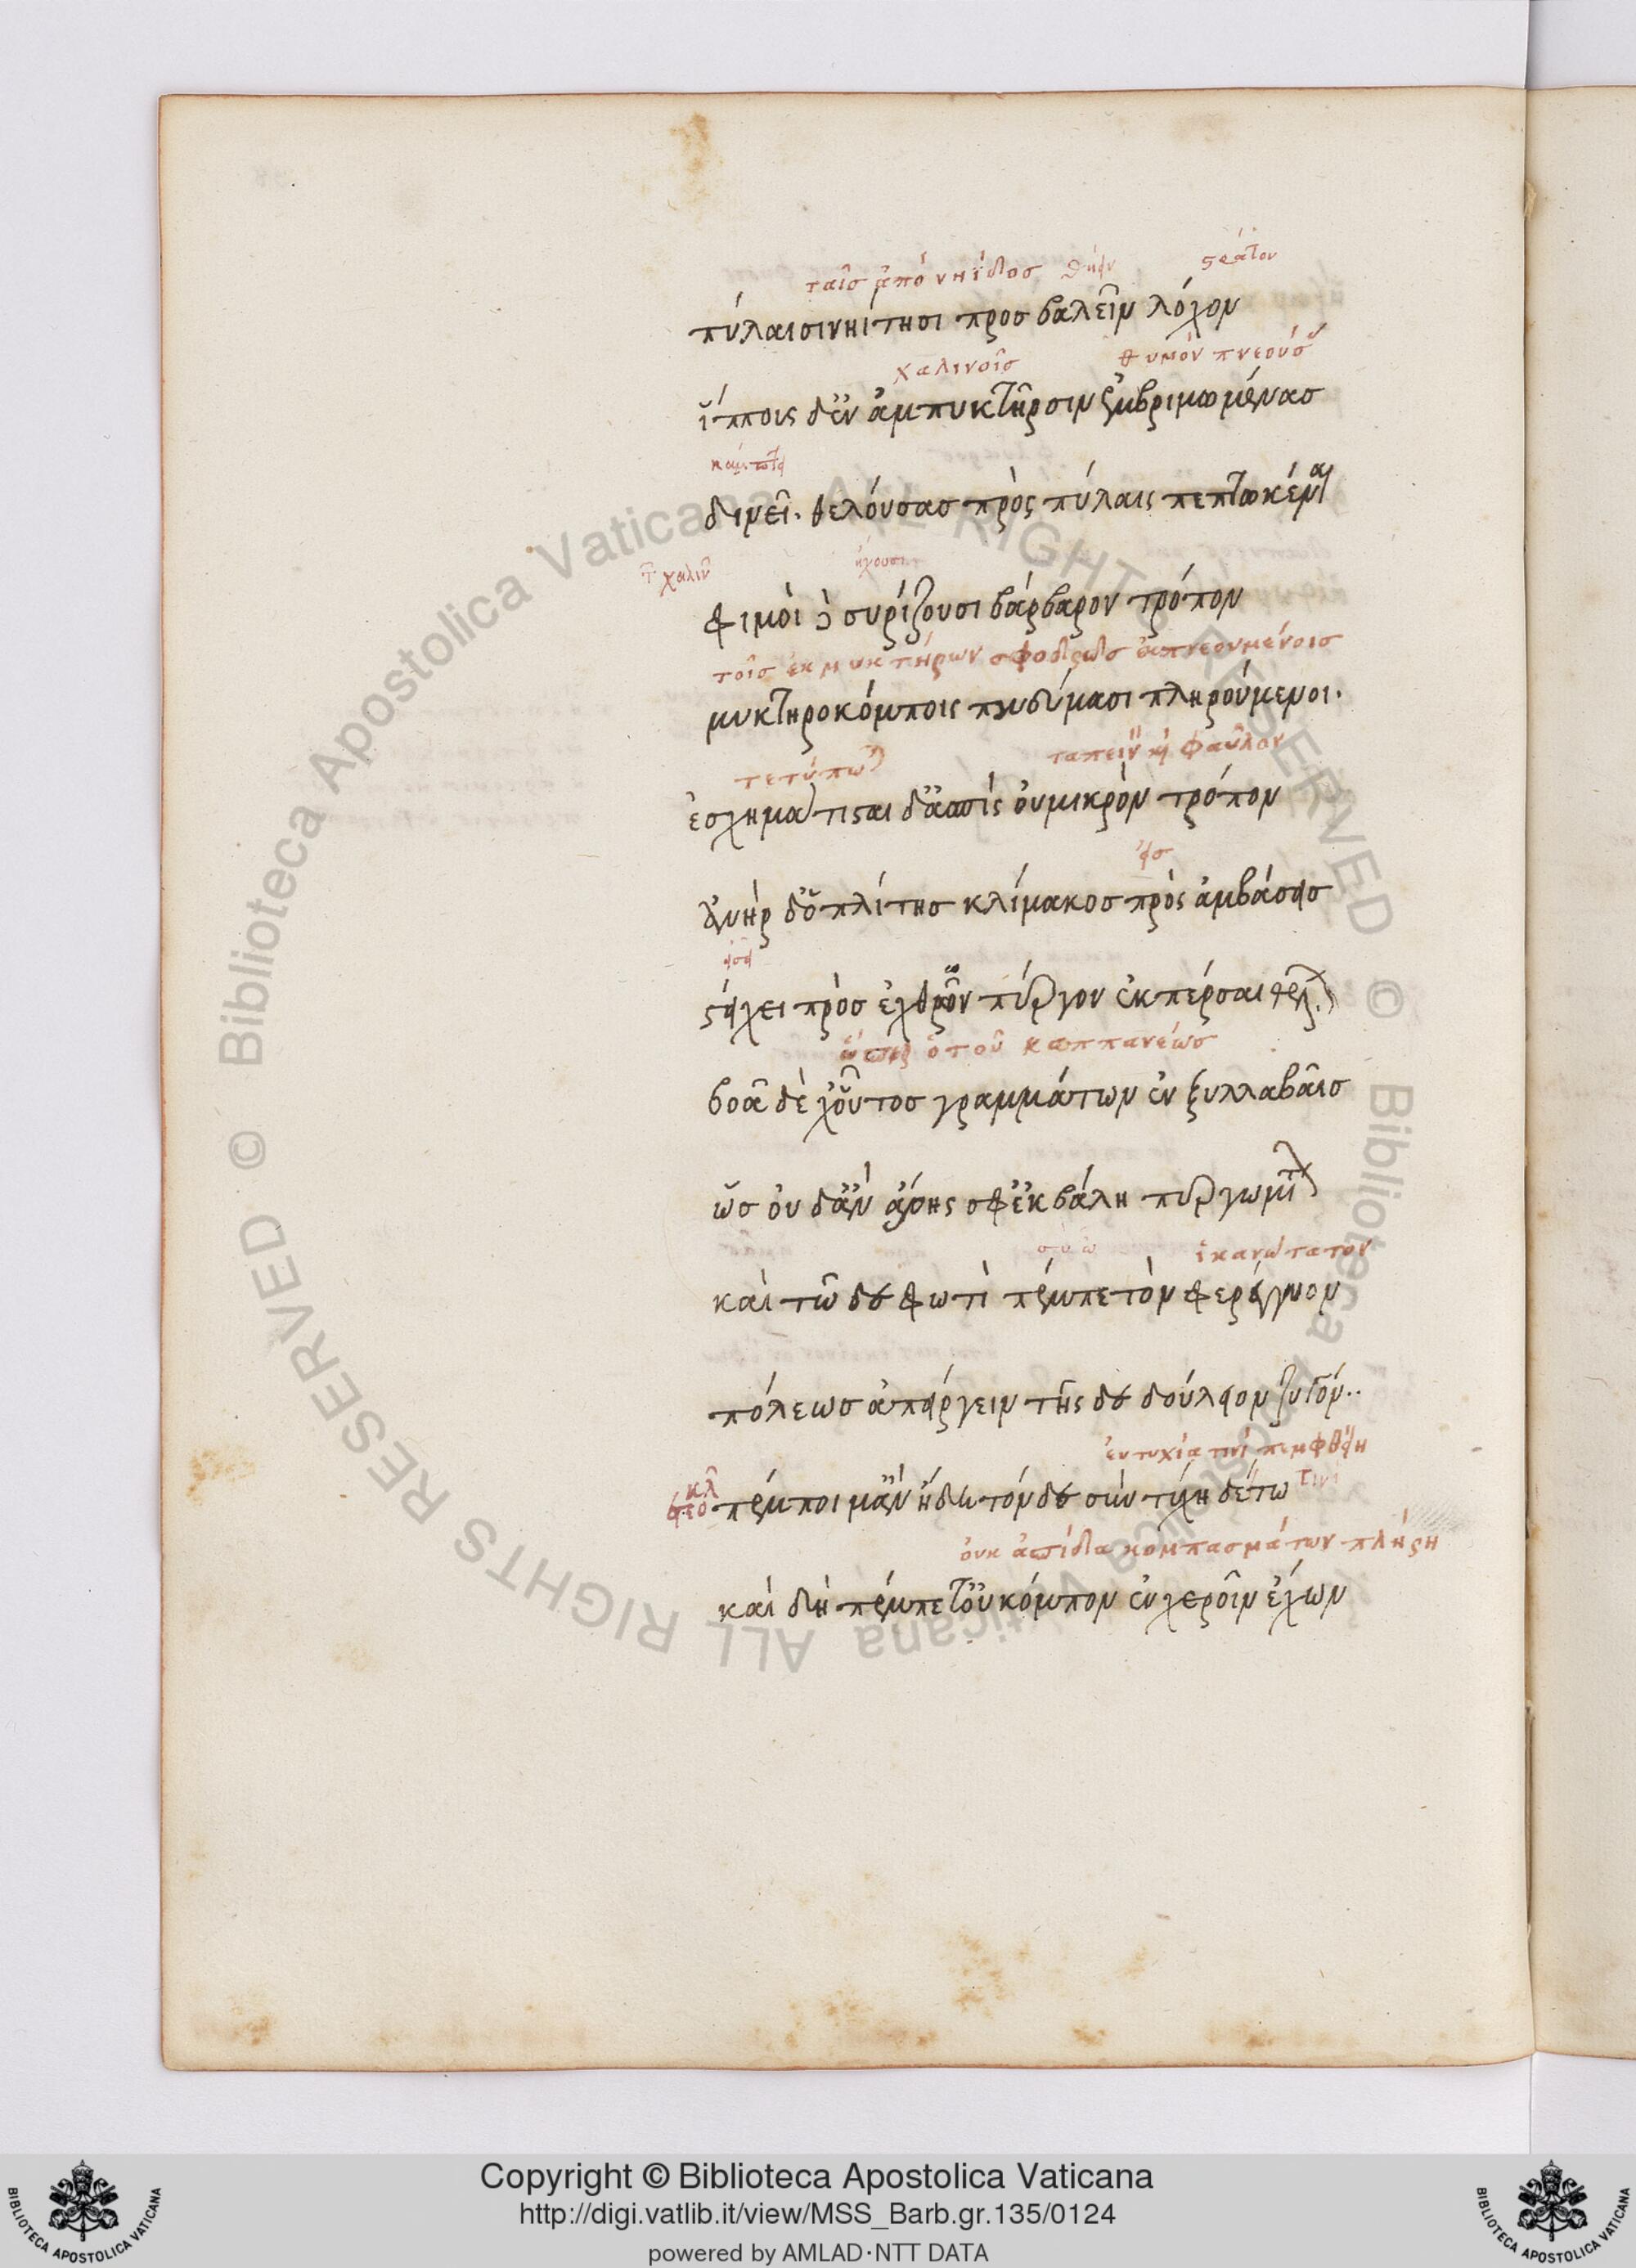 ταῖσ ἀπὸ νηΐδοσ
πύλαισι νηίτησι προσβαλεῖν λόχον
χαλινοῖσ θυμὸν πνεούσ
ἵπποις δἐν ἀμπυκτῆρσιν ἐμβριμωμένασ
δινεῖ· θελούσασ πρὸς πύλαις πεπτωκέναι
ἠχουσι
φιμοὶ δὲ συρίζουσι βάρβαρον τρόπον
τοῖσ ἐκ μυκτήρων σφοδρῶσ ἐκπνεουμένοισ
μυκτηροκόμποις πνεύμασι πληρούμενοι·
τετύπωται ταπεινὸν ἢ φαῦλον
ἐσχημάτισται δἀσπὶς οὐ μικρὸν τρόπον
ἀνὴρ δὁπλίτησ κλίμακοσ πρὸς ἀμβάσεισ
στείχει πρὸσ ἐχθρῶν πύργον ἐκπέρσαι θέλων
ὥσπερ ὁ τοῦ καππανέωσ
βοᾶ δὲ χοὗτοσ γραμμάτων ἐν ξυλλαβαῖσ
ὡσ οὐδἂν ἄρης σφἐκβάλη πυργωμάτων
ἱκανώτατον
καὶ τῶδε φωτὶ πέμπε τὸν φερέγγυον
πόλεωσ ἀπείργειν τῆς δε δούλειον ζυγόν··
εὐτυχία τινὶ πεμφθείη
πέμποιμἂν ἤδη τόνδε σὺν τύχη δέ τω
οὐκ ἀσπίδα κομπασμάτων πλήρη
καὶ δὴ πέμπετοὐ κόμπον ἐν χεροῖν ἔχων
Copyright © Biblioteca Apostolica Vaticana
http://digi.vatlib.it/view/MSS_Barb.gr.135/0124
powered by AMLAD·NTT DATA
BIBLIOTECA APOSTOLICA VATICANA
BIBLIOTECA APOSTOLICA VATICANA
© Biblioteca Apostolica Vaticana ALL RIGHTS RESERVED
© Biblioteca Apostolica Vaticana ALL RIGHTS RESERVED